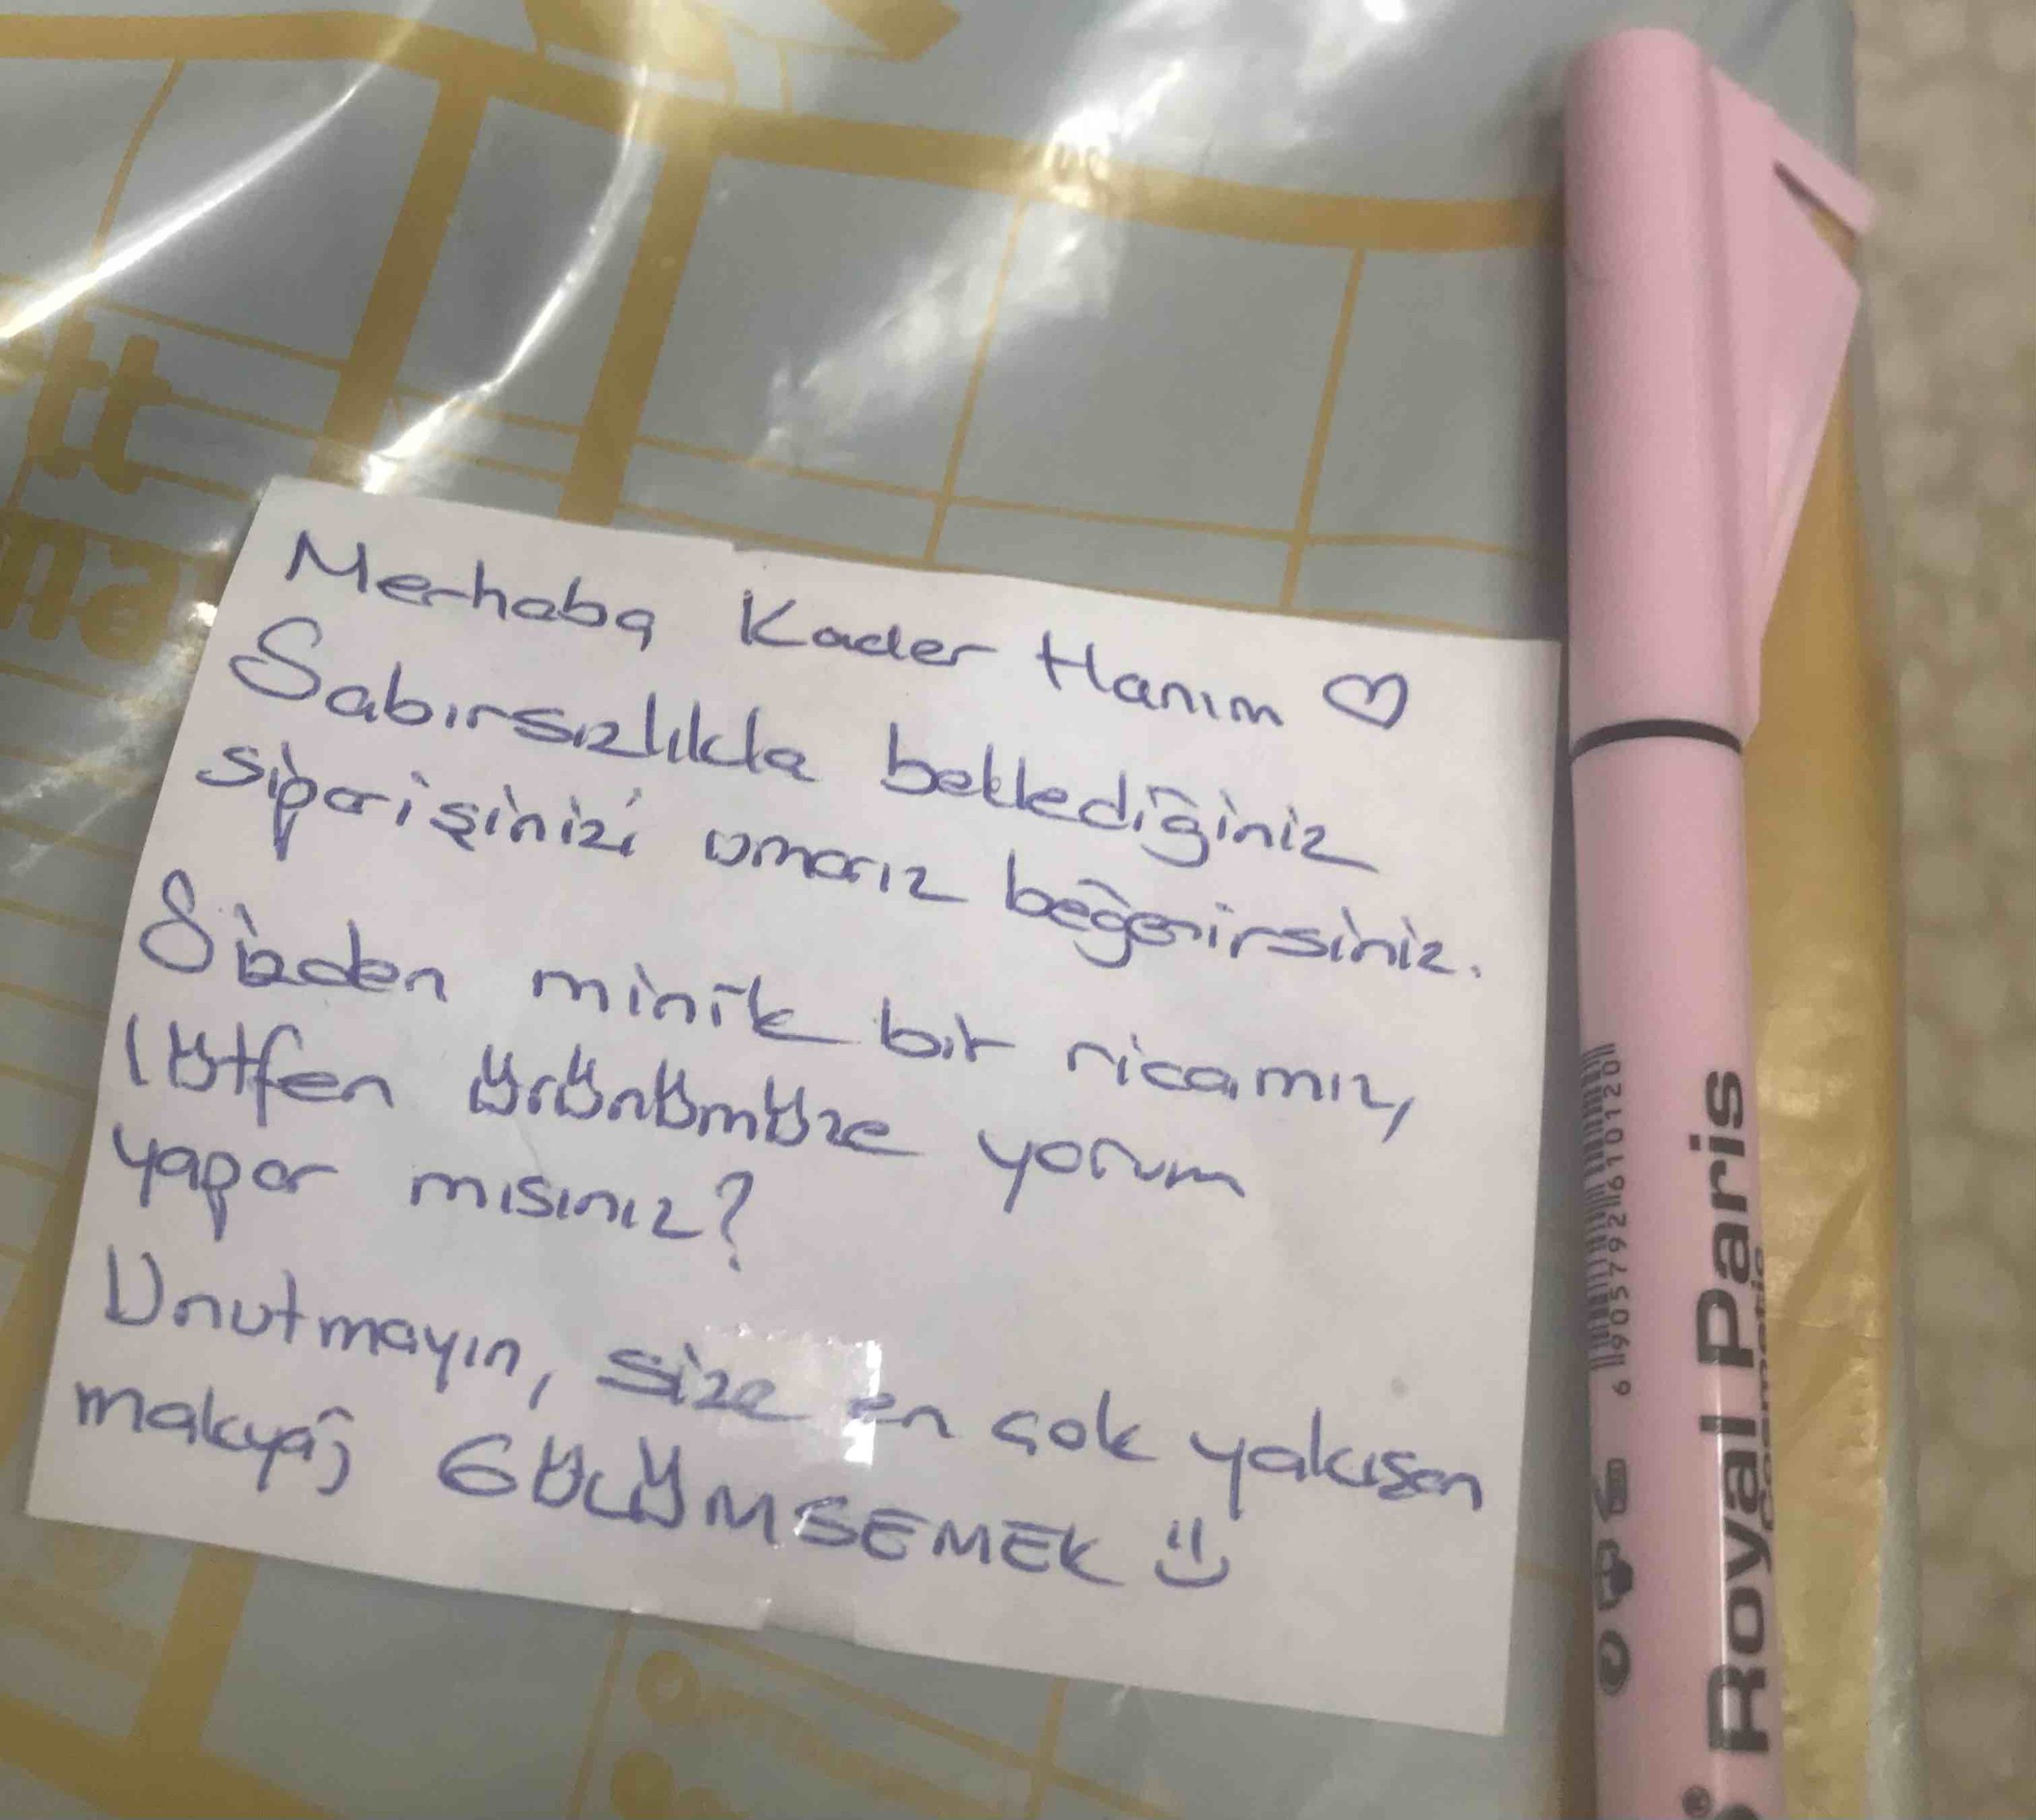 Merhaba Kader Hanım ♡
Sabırsızlıkla beklediğiniz
siparişinizi umarız beğenirsiniz.
Sizden minik bir ricamız,
lütfen ürünümüze yorum
yapar mısınız?
Unutmayın, size en çok yakışan
makyaj GÜLÜMSEMEK :)
6 905792 610120
Royal Paris
Cosmetic